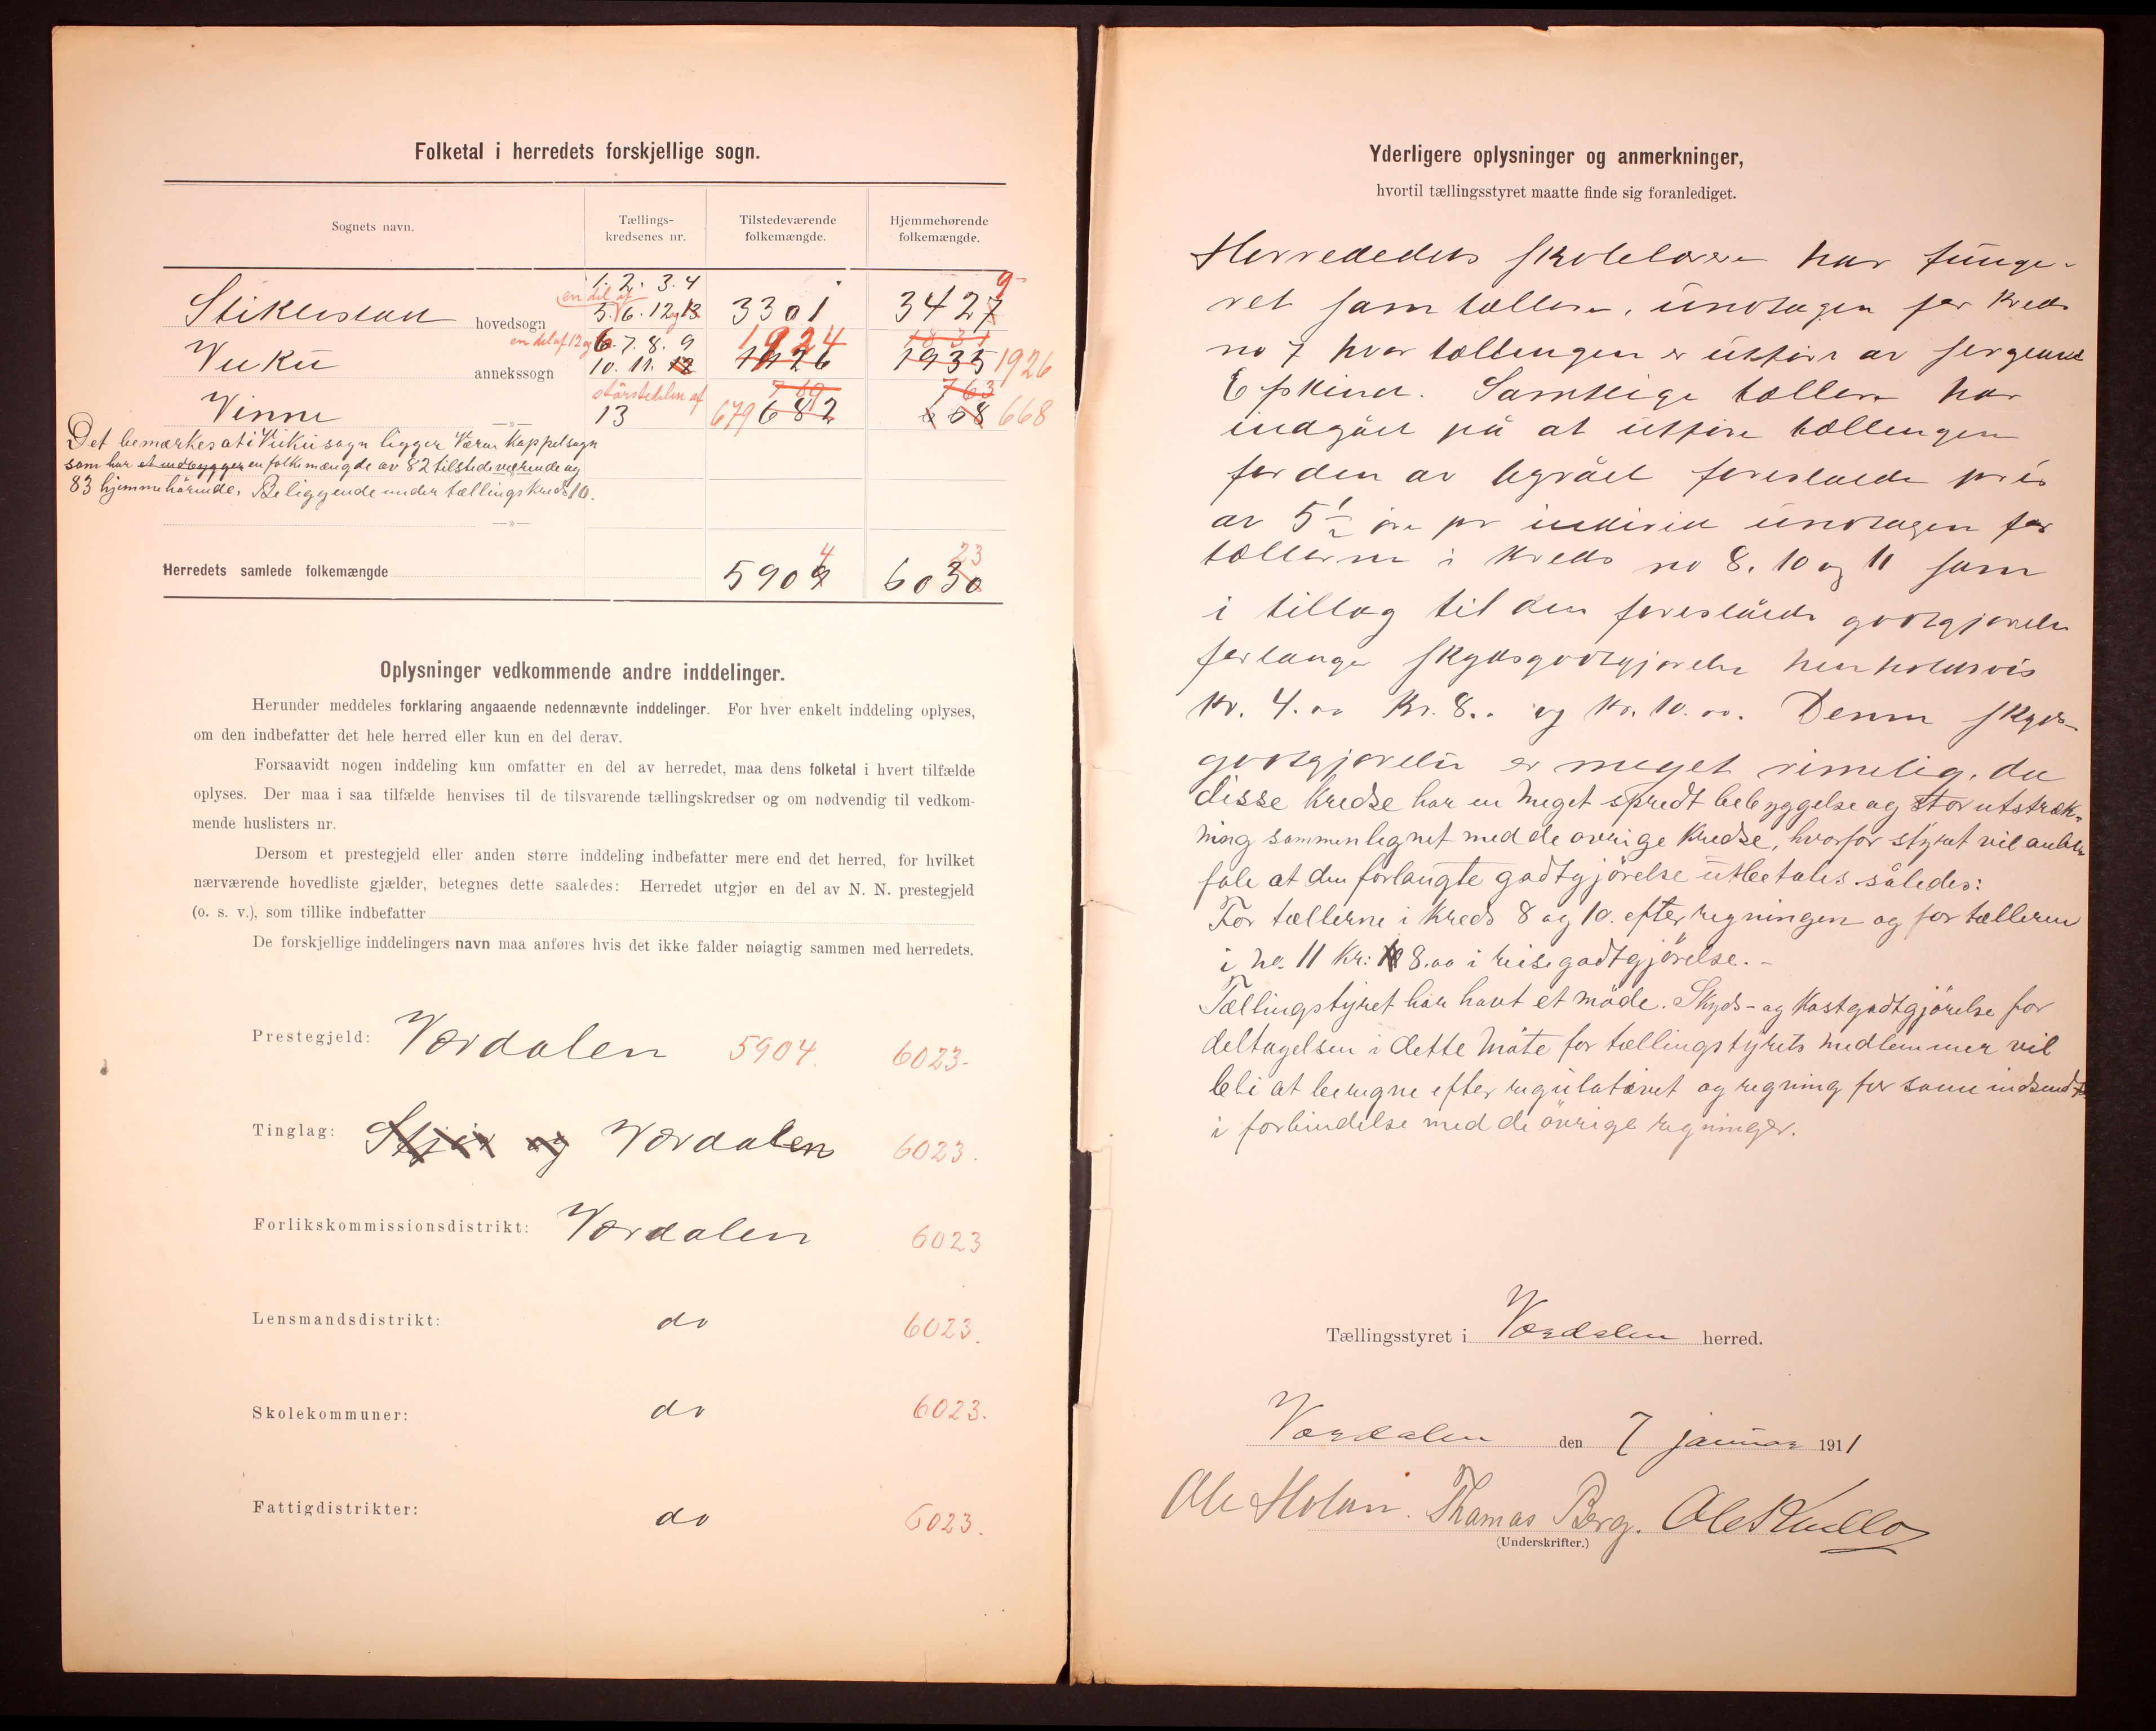 Folketal i herredets forskjellige sogn.
Sognets navn.
Tællings-
kredsenes nr.
Tilstedeværende
folkemængde.
Hjemmehørende
folkemængde.
1. 2. 3. 4
en del af
Stiklestad hovedsogn 5. 6. 12 og 13 3301 3427 9
en del af 12 og 6. 7. 8. 9 1924 1831
Vuku annekssogn 10. 11. 12 1926 1935 1926
størstedelen af 769 763
Vinne —»— 13 679 682 668 668
Det bemærkes at i Vuku sogn ligger Værn Kappelsogn
som har et indbygger en folkemængde av 82 tilstedeværende og
83 hjemmehörende. Beliggende under tællingskreds 10.
—»—
4 23
Herredets samlede folkemængde 5909 6030
Oplysninger vedkommende andre inddelinger.
Herunder meddeles forklaring angaaende nedennævnte inddelinger. For hver enkelt inddeling oplyses,
om den indbefatter det hele herred eller kun en del derav.
Forsaavidt nogen inddeling kun omfatter en del av herredet, maa dens folketal i hvert tilfælde
oplyses. Der maa i saa tilfælde henvises til de tilsvarende tællingskredser og om nødvendig til vedkom-
mende huslisters nr.
Dersom et prestegjeld eller anden større inddeling indbefatter mere end det herred, for hvilket
nærværende hovedliste gjælder, betegnes dette saaledes: Herredet utgjør en del av N. N. prestegjeld
(o. s. v.), som tillike indbefatter
De forskjellige inddelingers navn maa anføres hvis det ikke falder nøiagtig sammen med herredets.
Prestegjeld: Værdalen 5904. 6023-
Tinglag: og Værdalen 6023.
Forlikskommissionsdistrikt: Værdalen 6023
Lensmandsdistrikt: do 6023.
Skolekommuner: do 6023.
Fattigdistrikter: do 6023.
Yderligere oplysninger og anmerkninger,
hvortil tællingsstyret maatte finde sig foranlediget.
Herrededets skolelærere har funge-
ret som tællere, undtagen for kreds
no 7 hvor tællingen er utført av sergeant
Samtlige tællere har
indgået på at utføre tællingen
for den av byrået foreslåede pris
av 5 1/2 øre pr individ undtagen for
tællerne i kreds no 8, 10 og 11 som
i tillæg til den foreslåede godtgjørelse
forlanger skydsgodtgjørelse henholdsvis
kr. 4.00 Kr. 8.. og kr. 10.00. Denne skyds-
godtgjørelse er meget rimelig, da
disse kredse har en meget spredt bebyggelse og stor utstræk-
ning sammenlignet med de øvrige kredse, hvorfor styret vil anbe-
fale at den forlangte godtgjörelse utbetales således:
For tællerne i kreds 8 og 10. efter regningen og for tælleren
i no. 11 Kr: 8.00 i reisegodtgjörelse. -
Tællingstyret har havt et möde. Skyds- og kostgodtgjörelse for
deltagelsen i dette möte for tællingstyrets medlemmer vil
bli at beregne efter regulativet og regning for samme indsendt
i forbindelse med de övrige regninger.
Tællingsstyret i Værdalen herred.
Værdalen den 7 januar 1911
Ole Holan. Thomas Berg.
(Underskrifter.)